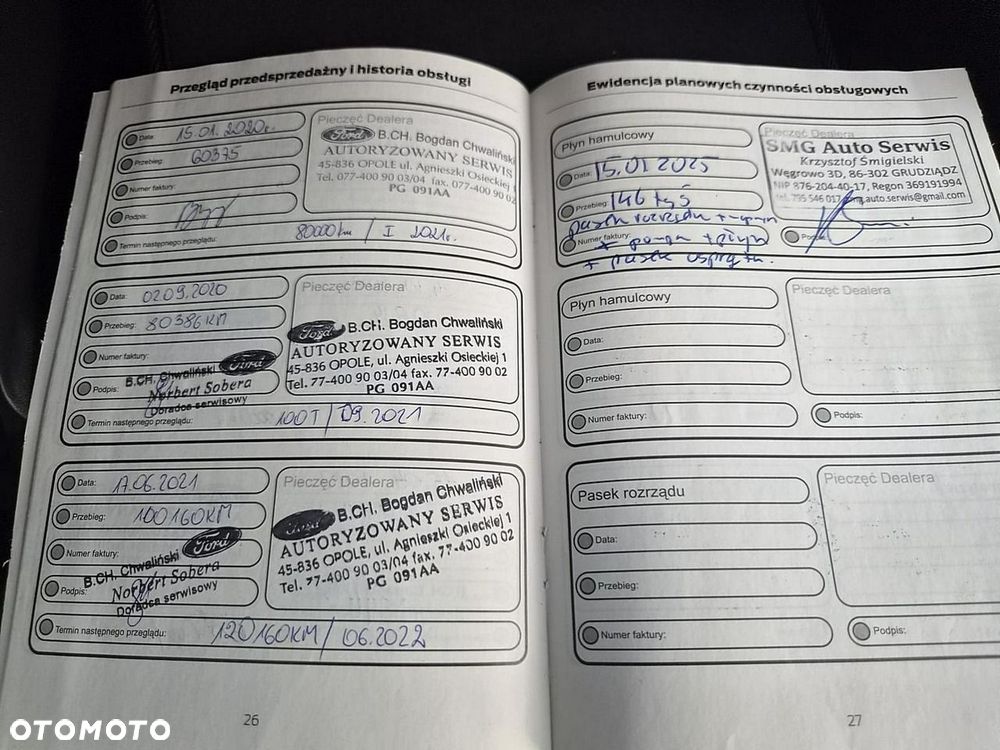 Przegląd przedsprzedażny i historia obsługi
Data: 15.01.2020r.
Przebieg: 60375
Numer faktury:
Podpis:
Termin następnego przeglądu: 80000 km / I 2021r.
Pieczęć Dealera
Ford B.CH. Bogdan Chwaliński
AUTORYZOWANY SERWIS
45-836 OPOLE ul. Agnieszki Osieckiej 1
Tel. 077-400 90 03/04 fax. 077-400 90 02
PG 091AA
Data: 02.09.2020
Przebieg: 80386KM
Numer faktury:
Podpis:
B.CH. Chwaliński Ford
Norbert Sobera
Doradca serwisowy
Termin następnego przeglądu: 100T / 09.2021
Pieczęć Dealera
Ford B.CH. Bogdan Chwaliński
AUTORYZOWANY SERWIS
45-836 OPOLE, ul. Agnieszki Osieckiej 1
Tel. 77-400 90 03/04 fax. 77-400 90 02
PG 091AA
Data: 17.06.2021
Przebieg: 100160KM
Numer faktury:
Podpis:
B.CH. Chwaliński Ford
Norbert Sobera
Doradca serwisowy
Termin następnego przeglądu: 120160KM / 06.2022
Pieczęć Dealera
Ford B.CH. Bogdan Chwaliński
AUTORYZOWANY SERWIS
45-836 OPOLE, ul. Agnieszki Osieckiej 1
Tel. 77-400 90 03/04 fax. 77-400 90 02
PG 091AA
26
Ewidencja planowych czynności obsługowych
Płyn hamulcowy
Data: 15.01 2025
Przebieg: 146 tyś
pasek rozrządu +
Numer faktury: + pompa + płyn
+ pasek osprzętu.
Pieczęć Dealera
SMG Auto Serwis
Krzysztof Śmigielski
Węgrowo 3D, 86-302 GRUDZIĄDZ
NIP 876-204-40-17, Regon 369191994
tel. 795 546 017 smg.auto.serwis@gmail.com
Płyn hamulcowy
Data:
Przebieg:
Numer faktury:
Podpis:
Pieczęć Dealera
Pasek rozrządu
Data:
Przebieg:
Numer faktury:
Podpis:
Pieczęć Dealera
27
OTOMOTO